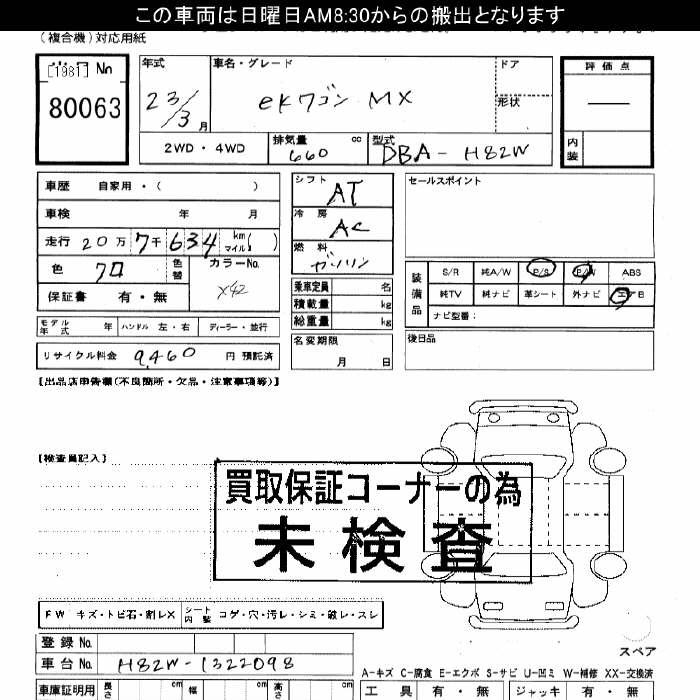 この車両は日曜日AM8:30からの搬出となります
（複合機）対応用紙
[1981] No
80063
年式 23/3 月
車名・グレード eKワゴン MX
ドア
形状
評価点
―
内装
2WD・4WD
排気量 660 cc
型式 DBA-H82W
車歴 自家用・（ ）
車検 年 月
走行 20万7千634 km マイル( )
色 クロ 色替
カラーNo. X42
保証書 有・無
シフト AT
冷房 AC
燃料 ガソリン
乗車定員 名
積載量 kg
総重量 kg
名変期限 月 日
セールスポイント
装備品
S/R 純A/W P/S P/W ABS
純TV 純ナビ 革シート 外ナビ エアB
ナビ型番：
後日品
モデル年式 年 ハンドル 左・右 ディーラー・並行
リサイクル料金 9,460 円 預託済
【出品店申告欄（不良箇所・欠品・注意事項等）】
【検査員記入】
買取保証コーナーの為
未検査
FW キズ・トビ石・割レX
シート内装 コゲ・穴・汚レ・シミ・破レ・スレ
登録No.
車台No. H82W-1322098
車庫証明用 長さ cm 幅 cm 高さ cm
スペア
A-キズ C-腐食 E-エクボ S-サビ U-凹ミ W-補修 XX-交換済
工具 有・無 ジャッキ 有・無